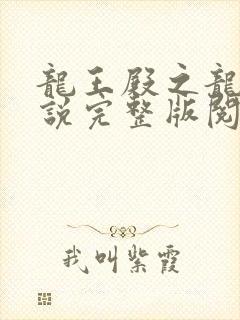 龍王殿之龍
說完整版閱
我叫紫霞